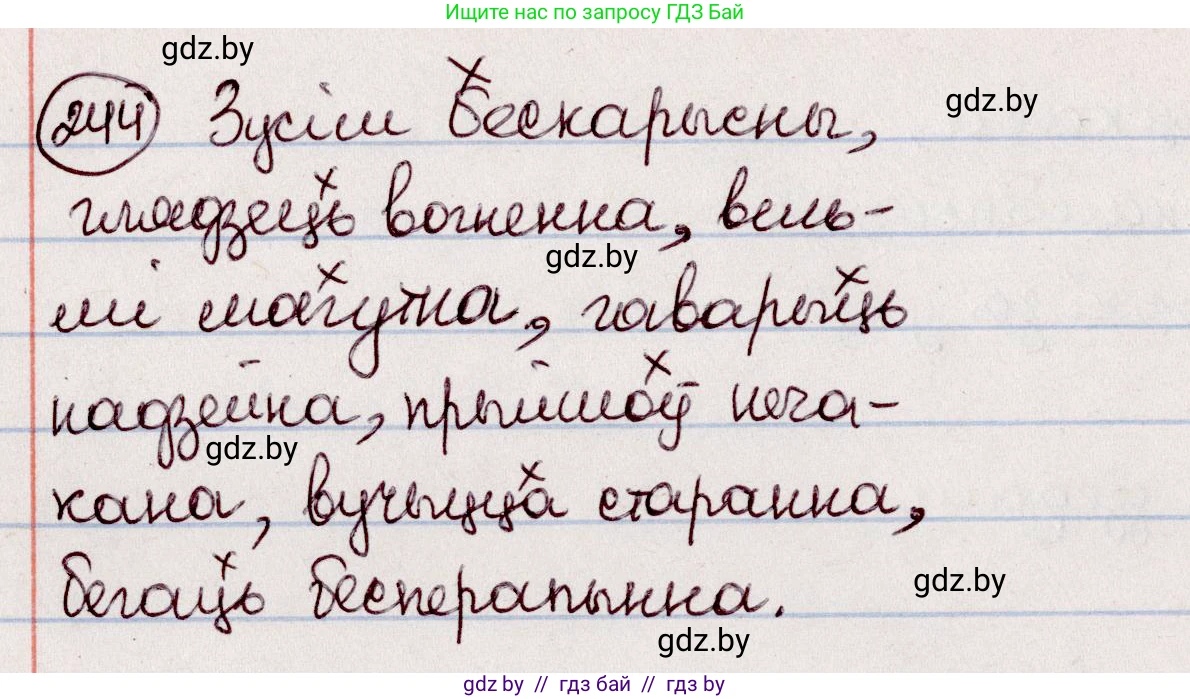 Ищите нас по запросу ГДЗ Бай
gdz.by
244 Зусім бескарысны,
gdz.by
глядзець вогненна, вель-
gdz.by
мі магутна, гаварыць
надзейна, прыйшоў неча-
gdz.by
кана, вучыцца старанна,
бегаць бесперапынна.
gdz.by
gdz.by
gdz by // гдз бай // гдз by